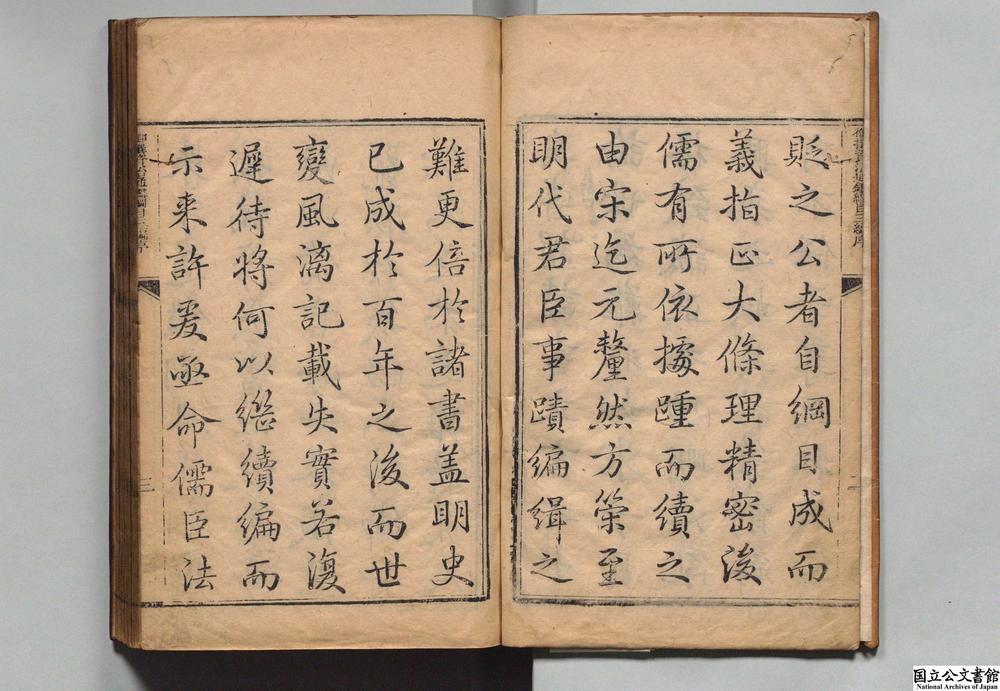 貶之公者自綱目成而
義指正大條理精密後
儒有所依據踵而續之
由宋迄元釐然方策至
明代君臣事蹟編緝之
二
難更倍於諸書盖明史
已成於百年之後而世
變風漓記載失實若復
遲待將何以繼續編而
示来許爰亟命儒臣法
三
国立公文書館
National Archives of Japan